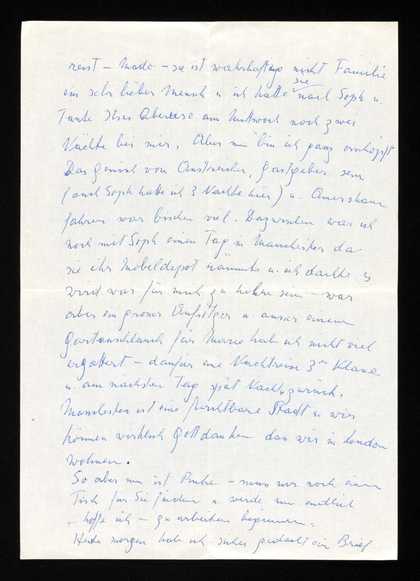 reist – Made – sie ist wahrhaftig nicht Familie
ein sehr lieber Mensch u ich hatte sie nach Soph u.
Tante Ilses Abreise am Mittwoch noch zwei
Nächte bei mir. Aber nun bin ich ganz erschöpft
Das Gemisch von Anstreicher, Gastgeber sein
(auch Soph habe ich 3 Nächte hier) u. Amersham
fahren war bischen viel. Dazwischen war ich
noch mit Soph einen Tag in Manchester da
sie ihr Möbeldepot räumte u. ich dachte es
wird was für mich zu holen sein – war
aber ein grosser Aufsitzer u ausser einem
Gartenschlauch für Marie hab ich nicht viel
ergattert – dafür eine Nachtreise 3ter Klasse
u. am nächsten Tag spät Nachts zurück.
Manchester ist eine furchtbare Stadt u wir
können wirklich Gott danken das wir in London
wohnen.
So aber nun ist Ruhe – muss nur noch einen
Tisch für Sie finden u werde nun endlich
– hoffe ich – zu arbeiten beginnen.
Heute morgen hab ich sicher gedacht ein Brief